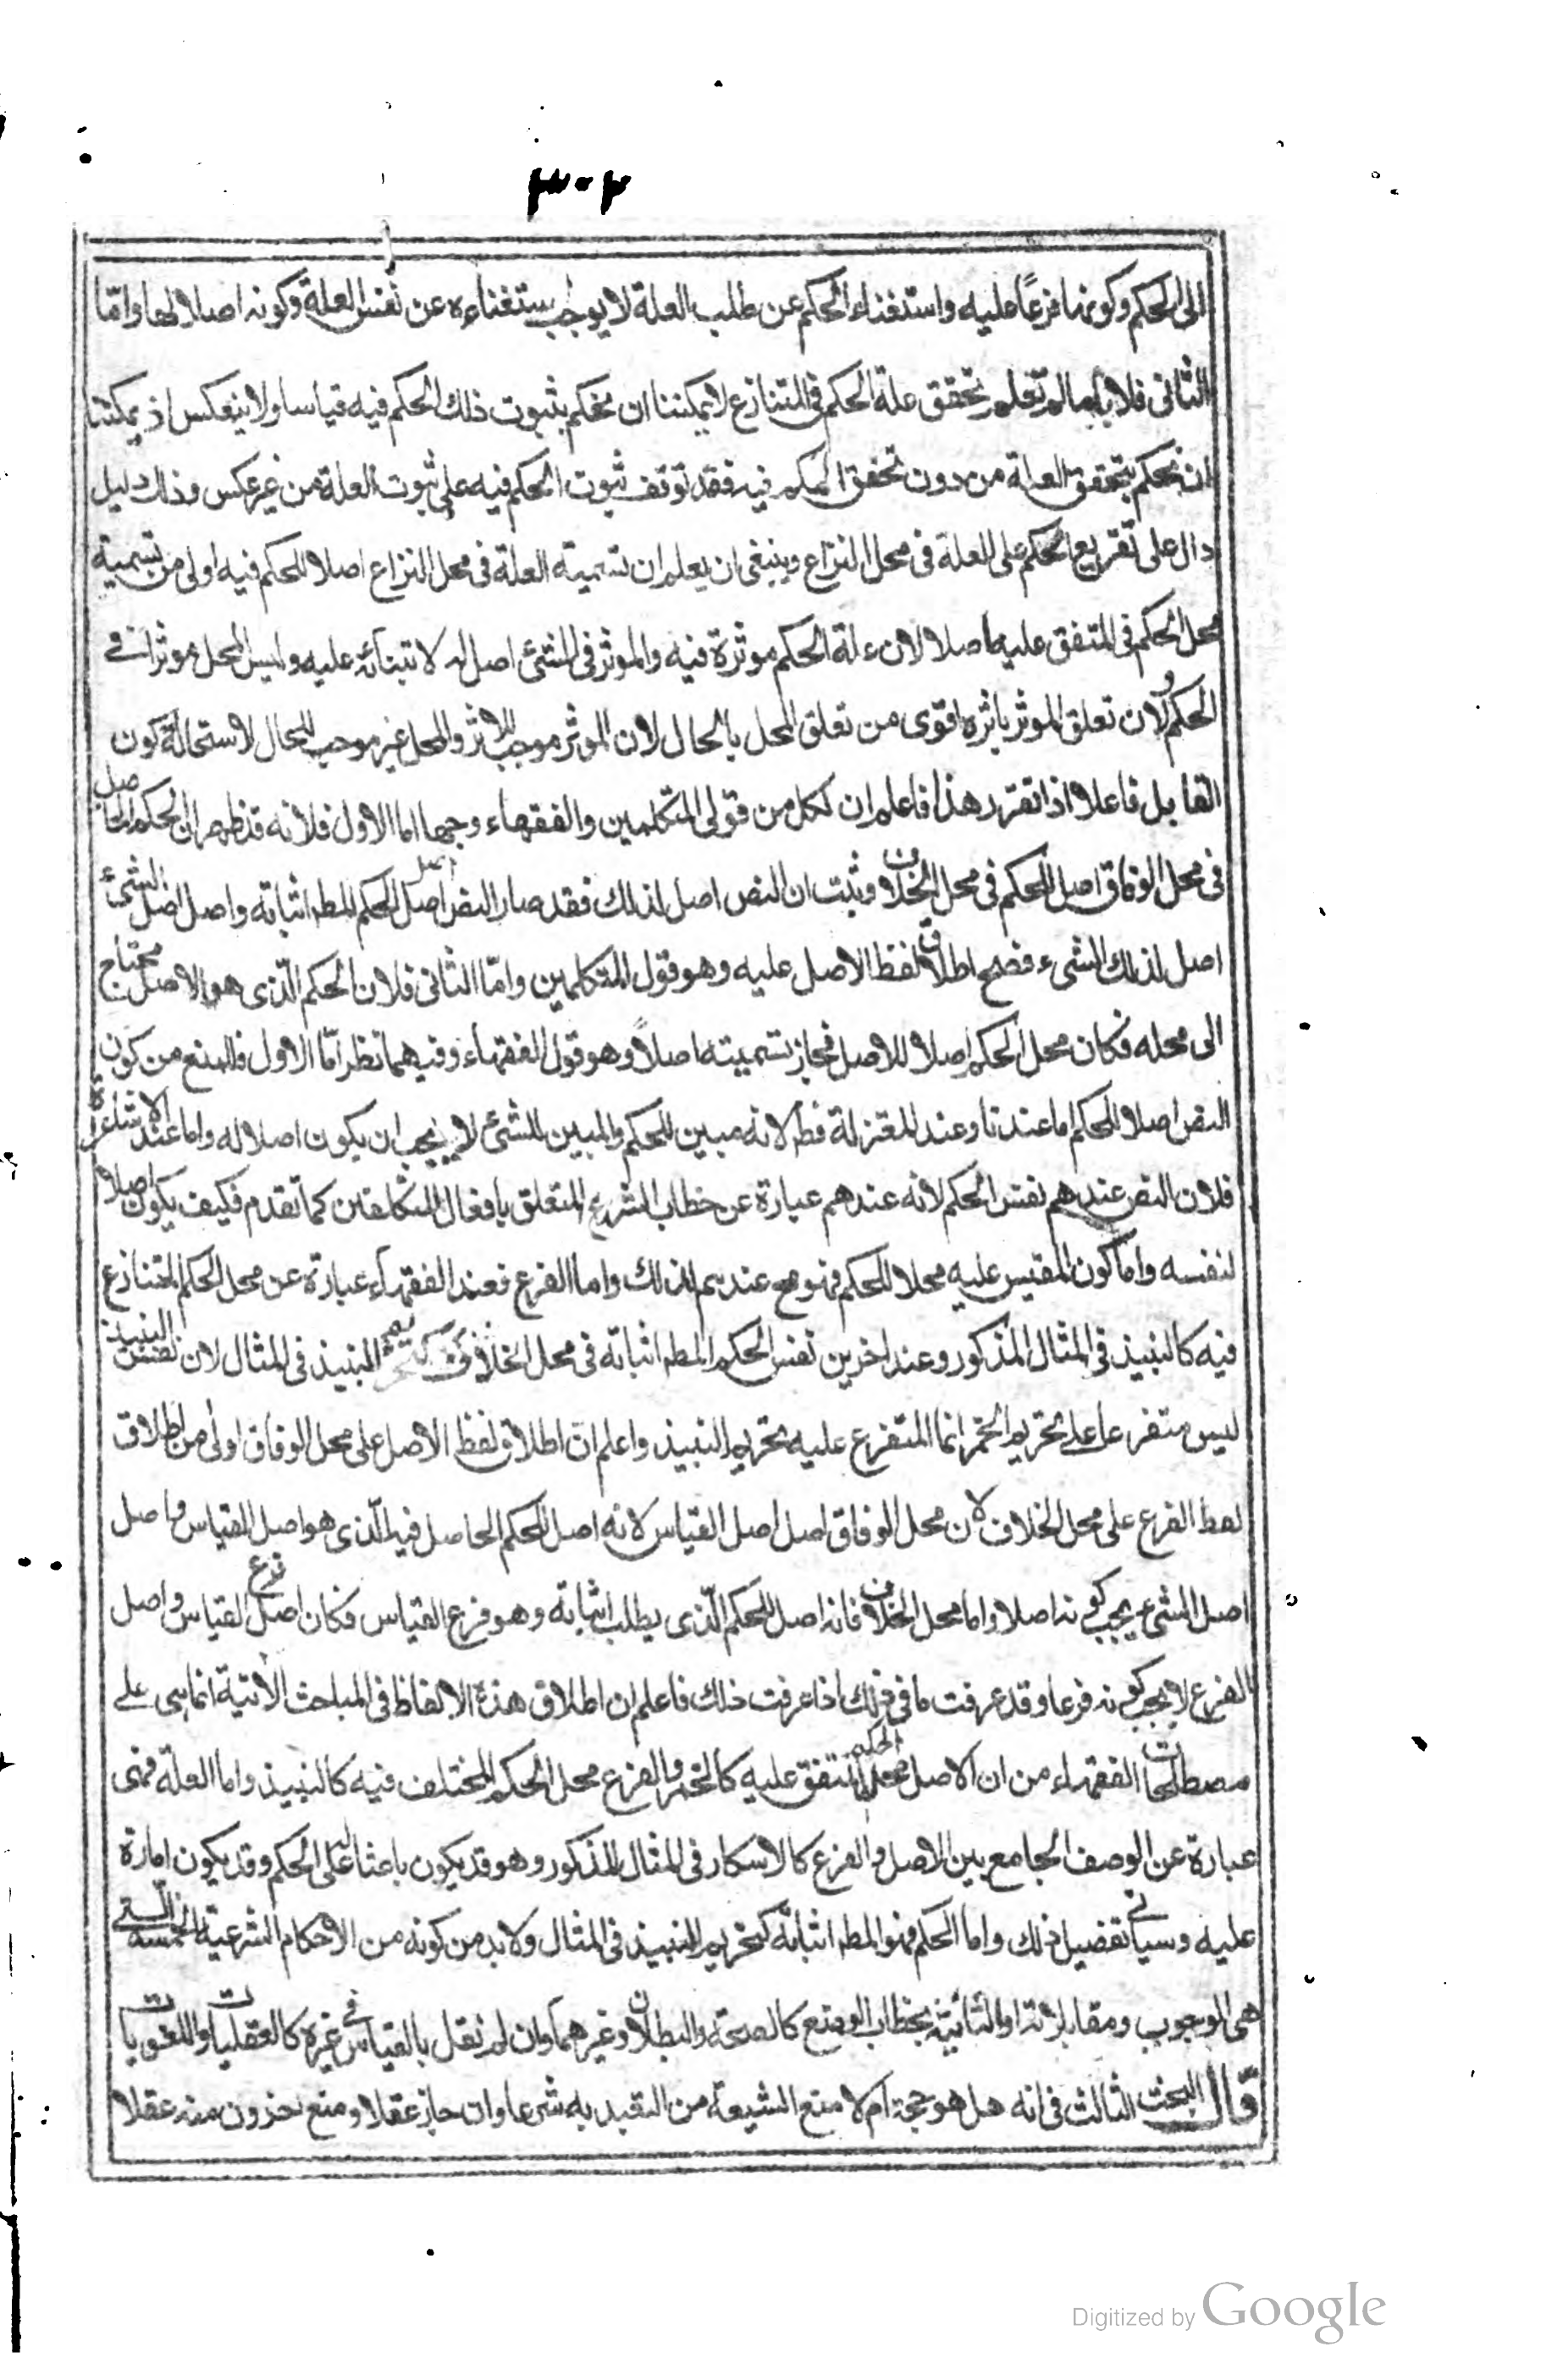 الى الحكم وكونها فرعًا عليه واستغناء الحكم عن طلب العلة لا يوجب استغناءه عن نفس العلة وكونه اصلا لها واما
الثانى فلانا ما لم نعلم تحقق علة الحكم فى المتنازع لا يمكننا ان نحكم بثبوت ذلك الحكم فيه قياسا ولا ينعكس اذ يمكننا
ان نحكم بتحقق العلة من دون تحقق الحكم فيه فقد توقف ثبوت الحكم فيه على ثبوت العلة من غير عكس وذلك دليل
دال على تفريع الحكم على العلة فى محل النزاع وينبغى ان يعلم ان تسمية العلة فى محل النزاع اصلا للحكم فيه اولى من تسمية
محل الحكم فى المتفق عليه اصلا لان علة الحكم موثرة فيه والموثر فى الشئ اصل له لابتنائه عليه وليس المحل موثرا فى
الحكم ولان تعلق الموثر باثره اقوى من تعلق المحل بالحال لان الموثر موجب للاثر والمحل غير موجب للحال لاستحالة كون
القابل فاعلا اذا تقرر هذا فاعلم ان لكل من قولى المتكلمين والفقهاء وجها اما الاول فلانه قد ظهر ان الحكم الحاصل
فى محل الوفاق اصل للحكم فى محل الخلاف وثبت ان النص اصل لذلك فقد صار النص اصل اصل الحكم المطه اثباته واصل اصل الشئ
اصل لذلك الشىء فصح اطلاق لفظ الاصل عليه وهو قول المتكلمين وامّا الثانى فلان الحكم الّذى هو الاصل محتاج
الى محله فكان محل الحكم اصلا للاصل فجاز تسميته اصلاً وهو قول الفقهاء وفيهما نظر امّا الاول فالمنع من كون
النص اصلا للحكم اما عندنا وعند المعتزلة فظ لانه مبين للحكم والمبين للشئ لا يجب ان يكون اصلا له واما عند الاشاعرة
فلان النص عندهم نفس الحكم لانه عندهم عبارة عن خطاب الشرع المتعلق بافعال المكلفين كما تقدم فكيف يكون اصلا
لنفسه واما كون المقيس عليه محلا للحكم فهو مح عندهم لذلك واما الفرع فعند الفقهاء عبارة عن محل الحكم المتنازع
فيه كالنبيذ فى المثال المذكور وعند اخرين نفس الحكم المطه اثباته فى محل الخلاف النبيذ فى المثال لان نفس النبيذ
ليس متفرعا على تحريم الخمر انما المتفرع عليه تحريم النبيذ واعلم ان اطلاق لفظ الاصل على محل الوفاق اولى من اطلاق
لفظ الفرع على محل الخلاف لان محل الوفاق اصل اصل القياس لانه اصل للحكم الحاصل فيه الّذى هو اصل القياس واصل
اصل الشىء يجب كونه اصلا واما محل الخلاف فانه اصل للحكم الّذى يطلب اثباته وهو فرع القياس فكان اصل فرع القياس واصل
الفرع لا يجب كونه فرعا وقد عرفت ما فى ذلك اذا عرفت ذلك فاعلم ان اطلاق هذه الالفاظ فى المباحث الاتية انما هى على
مصطلحات الفقهاء من ان الاصل محل الحكم المتفق عليه كالخمر والفرع محل الحكم المختلف فيه كالنبيذ واما العلة فهى
عبارة عن الوصف الجامع بين الاصل والفرع كالاسكار فى المثال المذكور وهو قد يكون باعثا على الحكم وقد يكون امارة
عليه وسياتى تفصيل ذلك واما الحكم فهو المطه اثباته كتحريم النبيذ فى المثال ولا بد من كونه من الاحكام الشرعية الخمسة التى
هى الوجوب ومقابلاته او الثابتة بخطاب الوضع كالصحة والبطلان وغيرهما وان لم نقل بالقياس فى غيره كالعقليات واللغويات
قال البحث الثالث فى انه هل هو حجة ام لا منع الشيعة من التعبد به شرعا وان جاز عقلا ومنع اخرون منه عقلا
Digitized by Google